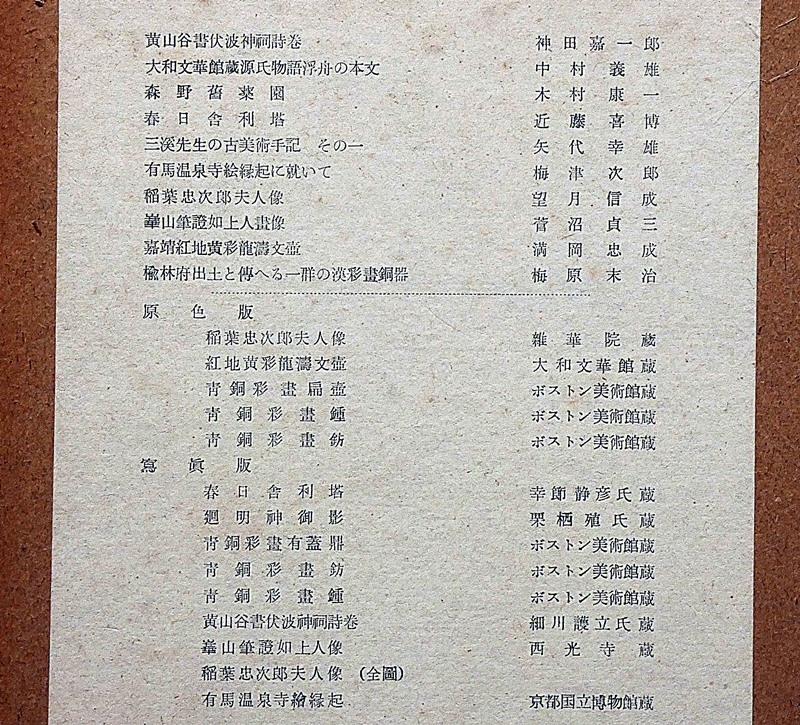 黄山谷書伏波神祠詩巻 神田嘉一郎
大和文華館蔵源氏物語浮舟の本文 中村義雄
森野舊薬園 木村康一
春日舎利塔 近藤喜博
三溪先生の古美術手記 その一 矢代幸雄
有馬温泉寺絵縁起に就いて 梅津次郎
稲葉忠次郎夫人像 望月信成
崋山筆證如上人畫像 菅沼貞三
嘉靖紅地黄彩龍濤文壺 満岡忠成
楡林府出土と傳へる一群の漢彩畫銅器 梅原末治
原色版
稲葉忠次郎夫人像 雜華院蔵
紅地黄彩龍濤文壺 大和文華館蔵
靑銅彩畫扁壺 ボストン美術館蔵
靑銅彩畫鍾 ボストン美術館蔵
靑銅彩畫鈁 ボストン美術館蔵
寫眞版
春日舎利塔 幸節静彦氏蔵
廻明神御影 栗栖殖氏蔵
靑銅彩畫有蓋鼎 ボストン美術館蔵
靑銅彩畫鈁 ボストン美術館蔵
靑銅彩畫鍾 ボストン美術館蔵
黄山谷書伏波神祠詩巻 細川護立氏蔵
崋山筆證如上人像 西光寺蔵
稲葉忠次郎夫人像 (全圖)
有馬温泉寺繪縁起 京都国立博物館蔵